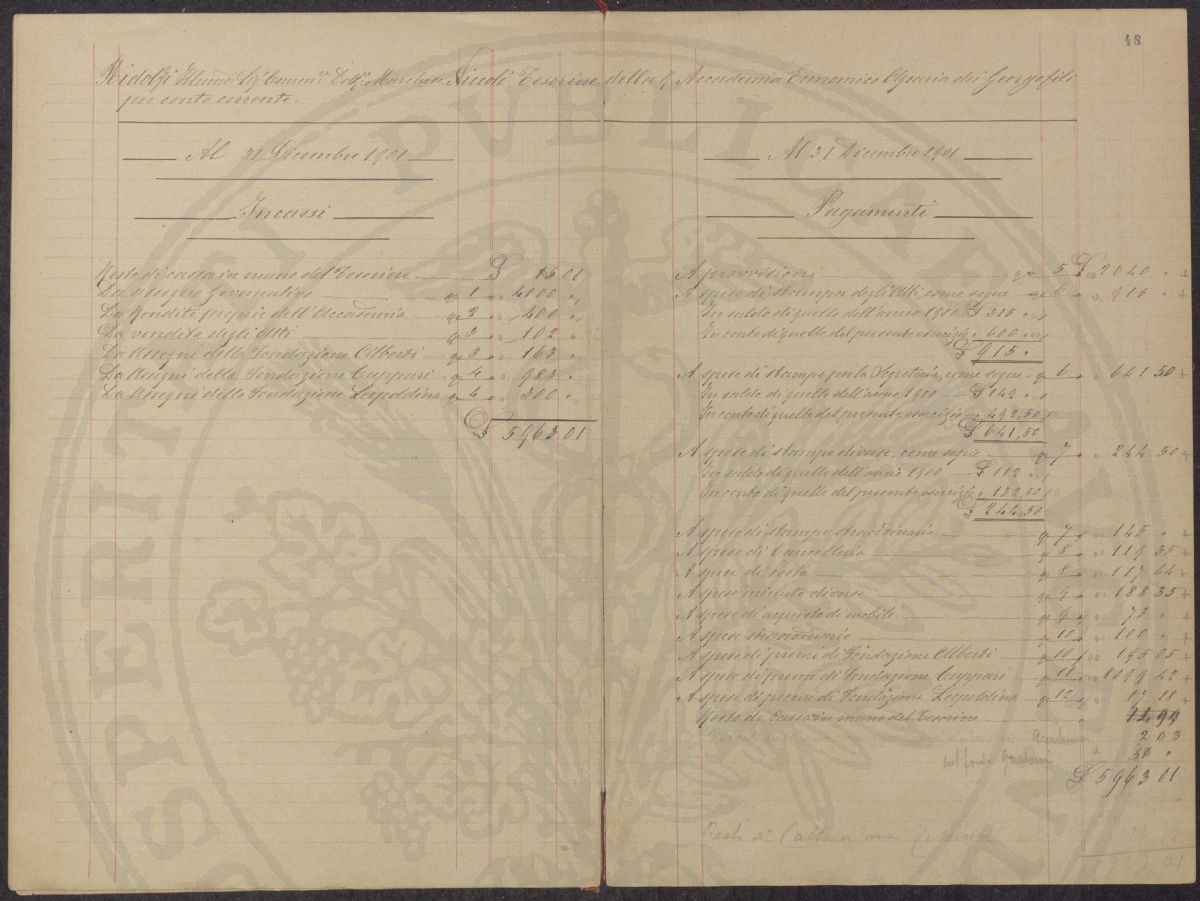 48
Ridolfi Illumo Sigr Comm. Marchese Niccolò Tesoriere della R. Accademia Economico Agraria dei Georgofili
per conto corrente.
Al 31 Dicembre 1901
Incassi
Resto di cassa in mano del Tesoriere £ 15 01
Da Assegno Governativo 1 4000 "
Da Rendite proprie dell'Accademia 2 400 "
Da vendita degli Atti 3 102 "
Da Assegni della Fondazione Alberti 3 163 "
Da Assegni della Fondazione Cuppari 4 983 "
Da Assegni della Fondazione Leopoldina 4 300 "
£ 5963 01
Al 31 Dicembre 1901
Pagamenti
A provvisioni 5 £ 2040 "
A spese di stampa degli Atti, come segue 6 915 "
In saldo di quelle dell'anno 1900 £ 315 "
In conto di quelle del presente esercizio 600 "
£ 915 "
A spese di stampe per la Segreteria, come segue 6 641 50
In saldo di quelle dell'anno 1900 £ 149 "
In conto di quelle del presente esercizio 492,50
£ 641,50
A spese di stampe diverse, come segue 7 244 50
In saldo di quelle dell'anno 1900 £ 112 "
In conto di quelle del presente esercizio 132,50
£ 244,50
A spese di stampe straordinarie 7 145 "
A spese di Cancelleria 8 119 35
A spese di Posta 8 117 64
A spese minute diverse 9 188 35
A spese di acquisto di mobili 9 73 "
A spese straordinarie 10 100 "
A spese di premi di Fondazione Alberti 10 195 05
A spese di premi di Fondazione Cuppari 11 1099 42
A spese di premi di Fondazione Leopoldina 12 17 18
Resto di Cassa in mano del Tesoriere
Accademia 2 03
sul fondo 50 "
£ 5963 01
Resto di Cassa in mano Tesoriere
PROSPERITATI PUBLICAE AUGENDAE